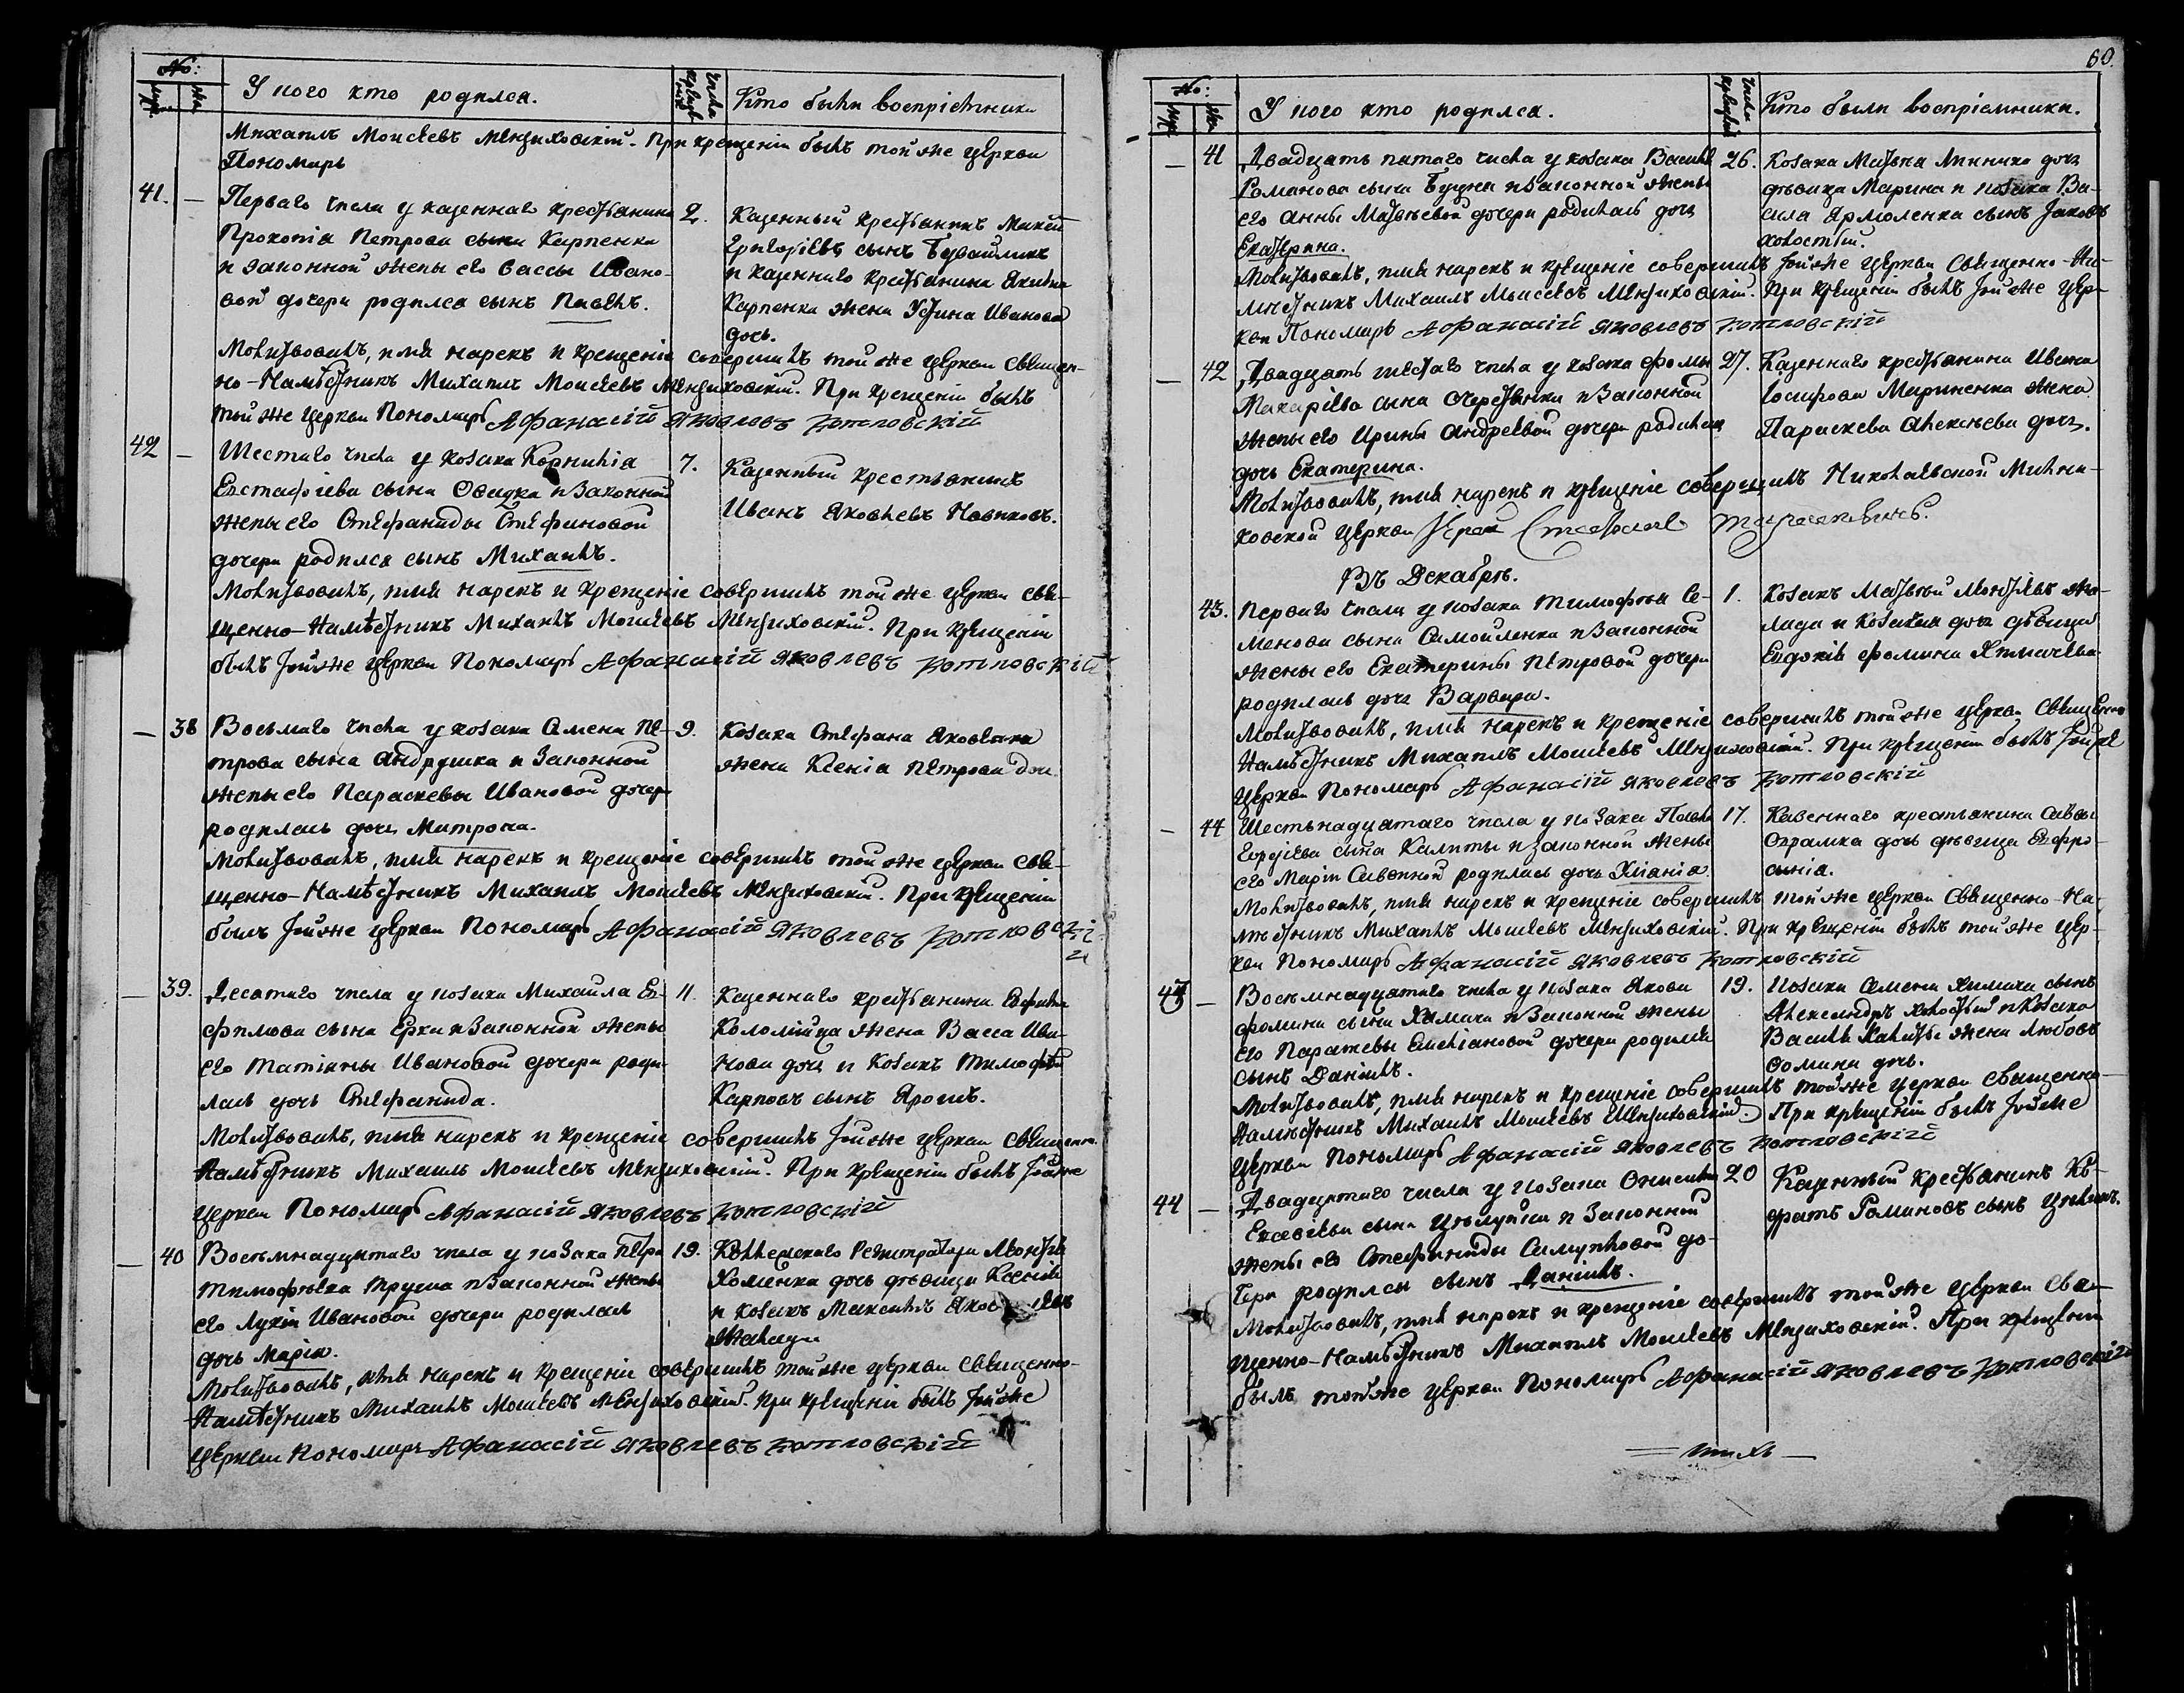 №:
муж. жен.
У кого кто родился.
Числа крещенія
Кто были воспріемники
Михаилъ Моисеевъ Мензиховскій. При крещеніи былъ той же церкви
Пономарь
41. —
Перваго числа у казеннаго крестьянина
Прокопія Петрова сына Карпенка
и законной жены его Вассы Ивано-
вой дочери родился сынъ Павелъ.
2.
Казенный крестьянинъ
Григоріевъ сынъ
и казеннаго крестьянина
Карпенка жена Устина Иванова
дочь.
Молитвовалъ, имя нарекъ и крещеніе совершилъ той же церкви Священ-
но-Намѣстникъ Михаилъ Моисеевъ Мензиховскій. При крещеніи былъ
той же церкви Пономарь Афанасій Яковлевъ Котловскій
42 —
Шестаго числа у козака Корнилія
Евстафіева сына Овидка и законной
жены его Стефаниды Стефановой
дочери родился сынъ Михаилъ.
7.
Казенный крестьянинъ
Иванъ Яковлевъ Новиковъ.
Молитвовалъ, имя нарекъ и крещеніе совершилъ той же церкви Свя-
щенно-Намѣстникъ Михаилъ Моисеевъ Мензиховскій. При крещеніи
былъ той же церкви Пономарь Афанасій Яковлевъ Котловскій
— 38
Восьмаго числа у козака Симена Пе-
трова сына Андрушка и законной
жены его Параскевы Ивановой дочери
родилась дочь Митрона.
9.
Козака Стефана Яковенка
жена Ксенія Петрова дочь
Молитвовалъ, имя нарекъ и крещеніе совершилъ той же церкви Свя-
щенно-Намѣстникъ Михаилъ Моисеевъ Мензиховскій. При крещеніи
былъ той же церкви Пономарь Афанасій Яковлевъ Котловскі
й
— 39.
Десятаго числа у козака Михаила Ев-
филова сына Ерка и законной жены
его Татіаны Ивановой дочери роди-
лась дочь Стефанида.
11.
Казеннаго крестьянина
Коломійца жена Васса Ива-
нова дочь и козакъ Тимофей
Карповъ сынъ Ярошъ.
Молитвовалъ, имя нарекъ и крещеніе совершилъ той же церкви Священно-
Намѣстникъ Михаилъ Моисеевъ Мензиховскій. При крещеніи былъ той же
церкви Пономарь Афанасій Яковлевъ Котловскій
— 40
Восемьнадцатаго числа у козака Петра
Тимофѣева Труша и законной жены
его Лукіи Ивановой дочери родилась
дочь Марія.
19.
Коллежскаго Регистратора Леонтія
Хоменка дочь дѣвица Ксенія
и козакъ Максимъ
Молитвовалъ, имя нарекъ и крещеніе совершилъ той же церкви Священно-
Намѣстникъ Михаилъ Моисеевъ Мензиховскій. При крещеніи былъ той же
церкви Пономарь Афанасій Яковлевъ Котловскій
60.
№:
муж. жен.
У кого кто родился.
Числа крещенія
Кто были воспріемники.
— 41
Двадцать пятаго числа у козака Василія
Романова сына Буцка и законной жены
его Анны Матвѣевой дочери родилась дочь
Екатерина.
26.
Козака Матвѣя Линника дочь
дѣвица Марина и козака Ва-
силія Ярмоленка сынъ Іаковъ
холостый.
Молитвовалъ, имя нарекъ и крещеніе совершилъ той же церкви Священно-На-
мѣстникъ Михаилъ Моисеевъ Мензиховскій. При крещеніи былъ той же цер-
кви Пономарь Афанасій Яковлевъ Котловскій
— 42
Двадцать шестаго числа у козака Фомы
Макаріева сына и законной
жены его Ирины Андреевой дочери родилась
дочь Екатерина.
27.
Казеннаго крестьянина Ивана
Іосифова Мариненка жена
Параскева Алексѣева дочь.
Молитвовалъ, имя нарекъ и крещеніе совершилъ Николаевской
церкви Іерей
Въ Декабрѣ.
43.
Перваго числа у козака Тимофѣя Се-
менова сына Самойленка и законной
жены его Екатерины Петровой дочери
родилась дочь Варвара.
1.
Козакъ Матвѣй Леонтіевъ
и козачья дочь дѣвица
Евдокія Фомина Химичева
Молитвовалъ, имя нарекъ и крещеніе совершилъ той же церкви Священно
Намѣстникъ Михаилъ Моисеевъ Мензиховскій. При крещеніи былъ той же
церкви Пономарь Афанасій Яковлевъ Котловскій
— 44
Шестьнадцатаго числа у козака Павла
сына Калиты и законной жены
его Маріи Савиной родилась дочь Уліанія.
17.
Казеннаго крестьянина Саввы
Охрамка дочь дѣвица Евфро-
синія.
Молитвовалъ, имя нарекъ и крещеніе совершилъ той же церкви Священно-На-
мѣстникъ Михаилъ Моисеевъ Мензиховскій. При крещеніи былъ той же цер-
кви Пономарь Афанасій Яковлевъ Котловскій
43 —
Восемьнадцатаго числа у козака Якова
Фомина сына Химича и законной жены
его Параскевы Емеліановой дочери родился
сынъ Даніилъ.
19.
Козака Симена Химича сынъ
Александръ холостый и козака
Василія Калиты жена Любовь
Фомина дочь.
Молитвовалъ, имя нарекъ и крещеніе совершилъ той же церкви Священно-
Намѣстникъ Михаилъ Моисеевъ Мензиховскій. При крещеніи былъ той же
церкви Пономарь Афанасій Яковлевъ Котловскій
44 —
Двадцатаго числа у козака Онисима
Евсевіева сына Цѣлуйка и законной
жены его Стефаниды Самуиловой до-
чери родился сынъ Даніилъ.
20
Казенный крестьянинъ Ко-
дратъ Романовъ сынъ
Молитвовалъ, имя нарекъ и крещеніе совершилъ той же церкви Свя-
щенно-Намѣстникъ Михаилъ Моисеевъ Мензиховскій. При крещеніи
былъ той же церкви Пономарь Афанасій Яковлевъ Котловскій